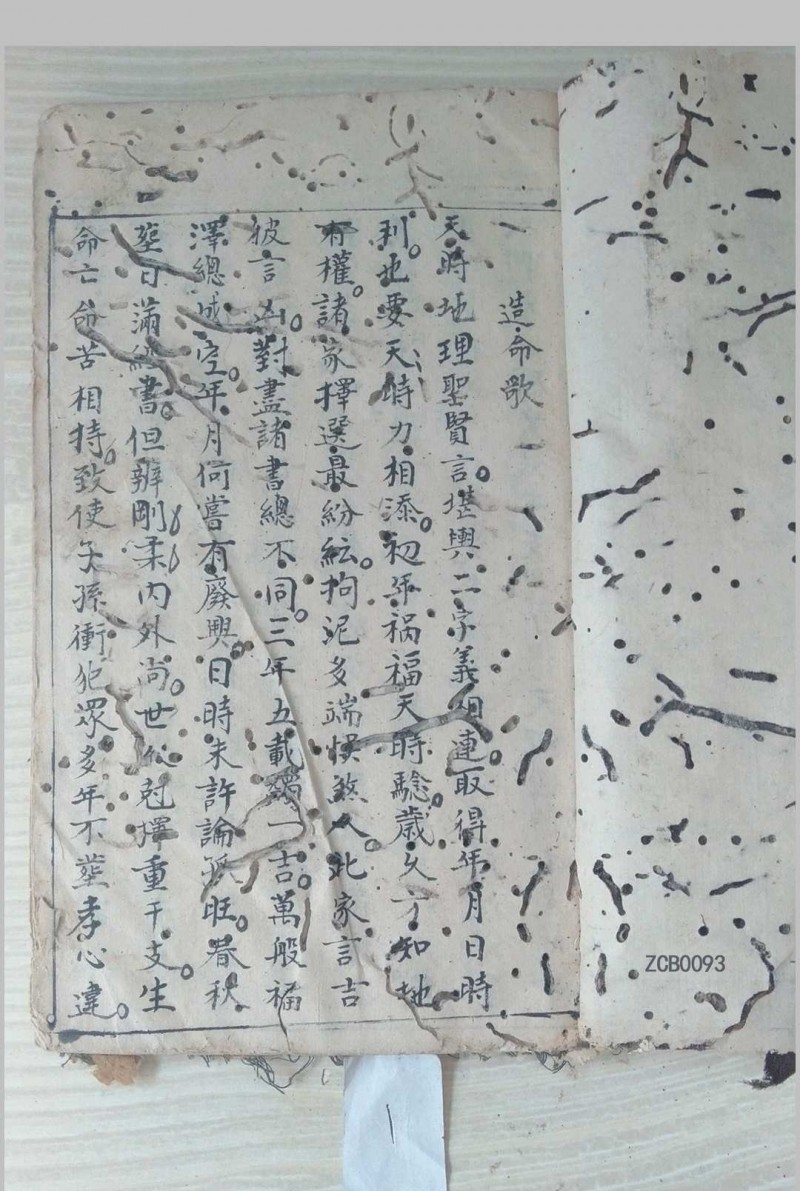 造命歌
天時地理聖賢言。堪輿二字義相連取得年月日時
利。也要天時力相添。初年禍福天時驗歲久方知地
有權。諸家擇選最紛紜。拘泥多端悞煞人。此家言吉
彼言凶。對盡諸書總不同。三年五載一吉。萬般福
澤總成空。年月何嘗有廢興。日時未許論孤旺。春秋
塟日滿經書。但辨剛柔內外尚。世俗尅擇重干支。生
命亡命苦相持。致使子孫衝犯眾多年不塟孝心違。
ZCB0093
1